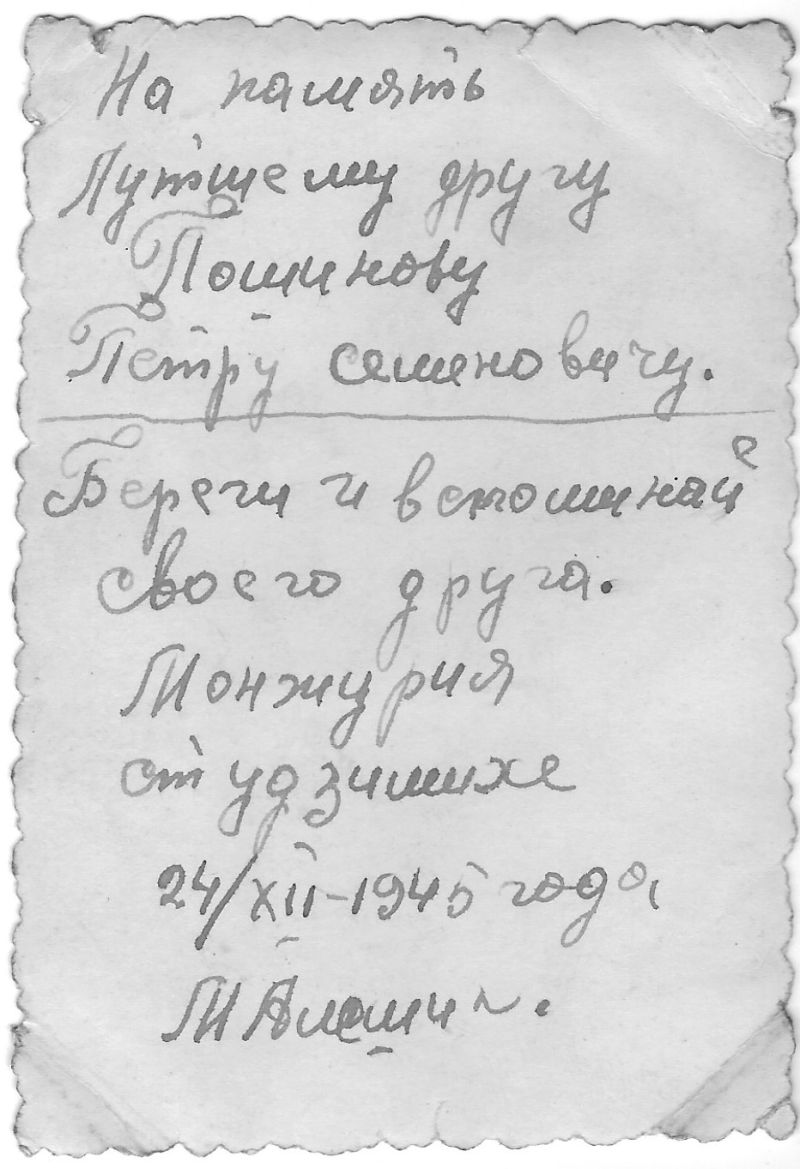 На память
Лутшему другу
Пошинову
Петру семеновичу.
Береги и вспоминай
своего друга.
Монжурия
ст удзимихе
24/XII-1945 года,
М Алешин.